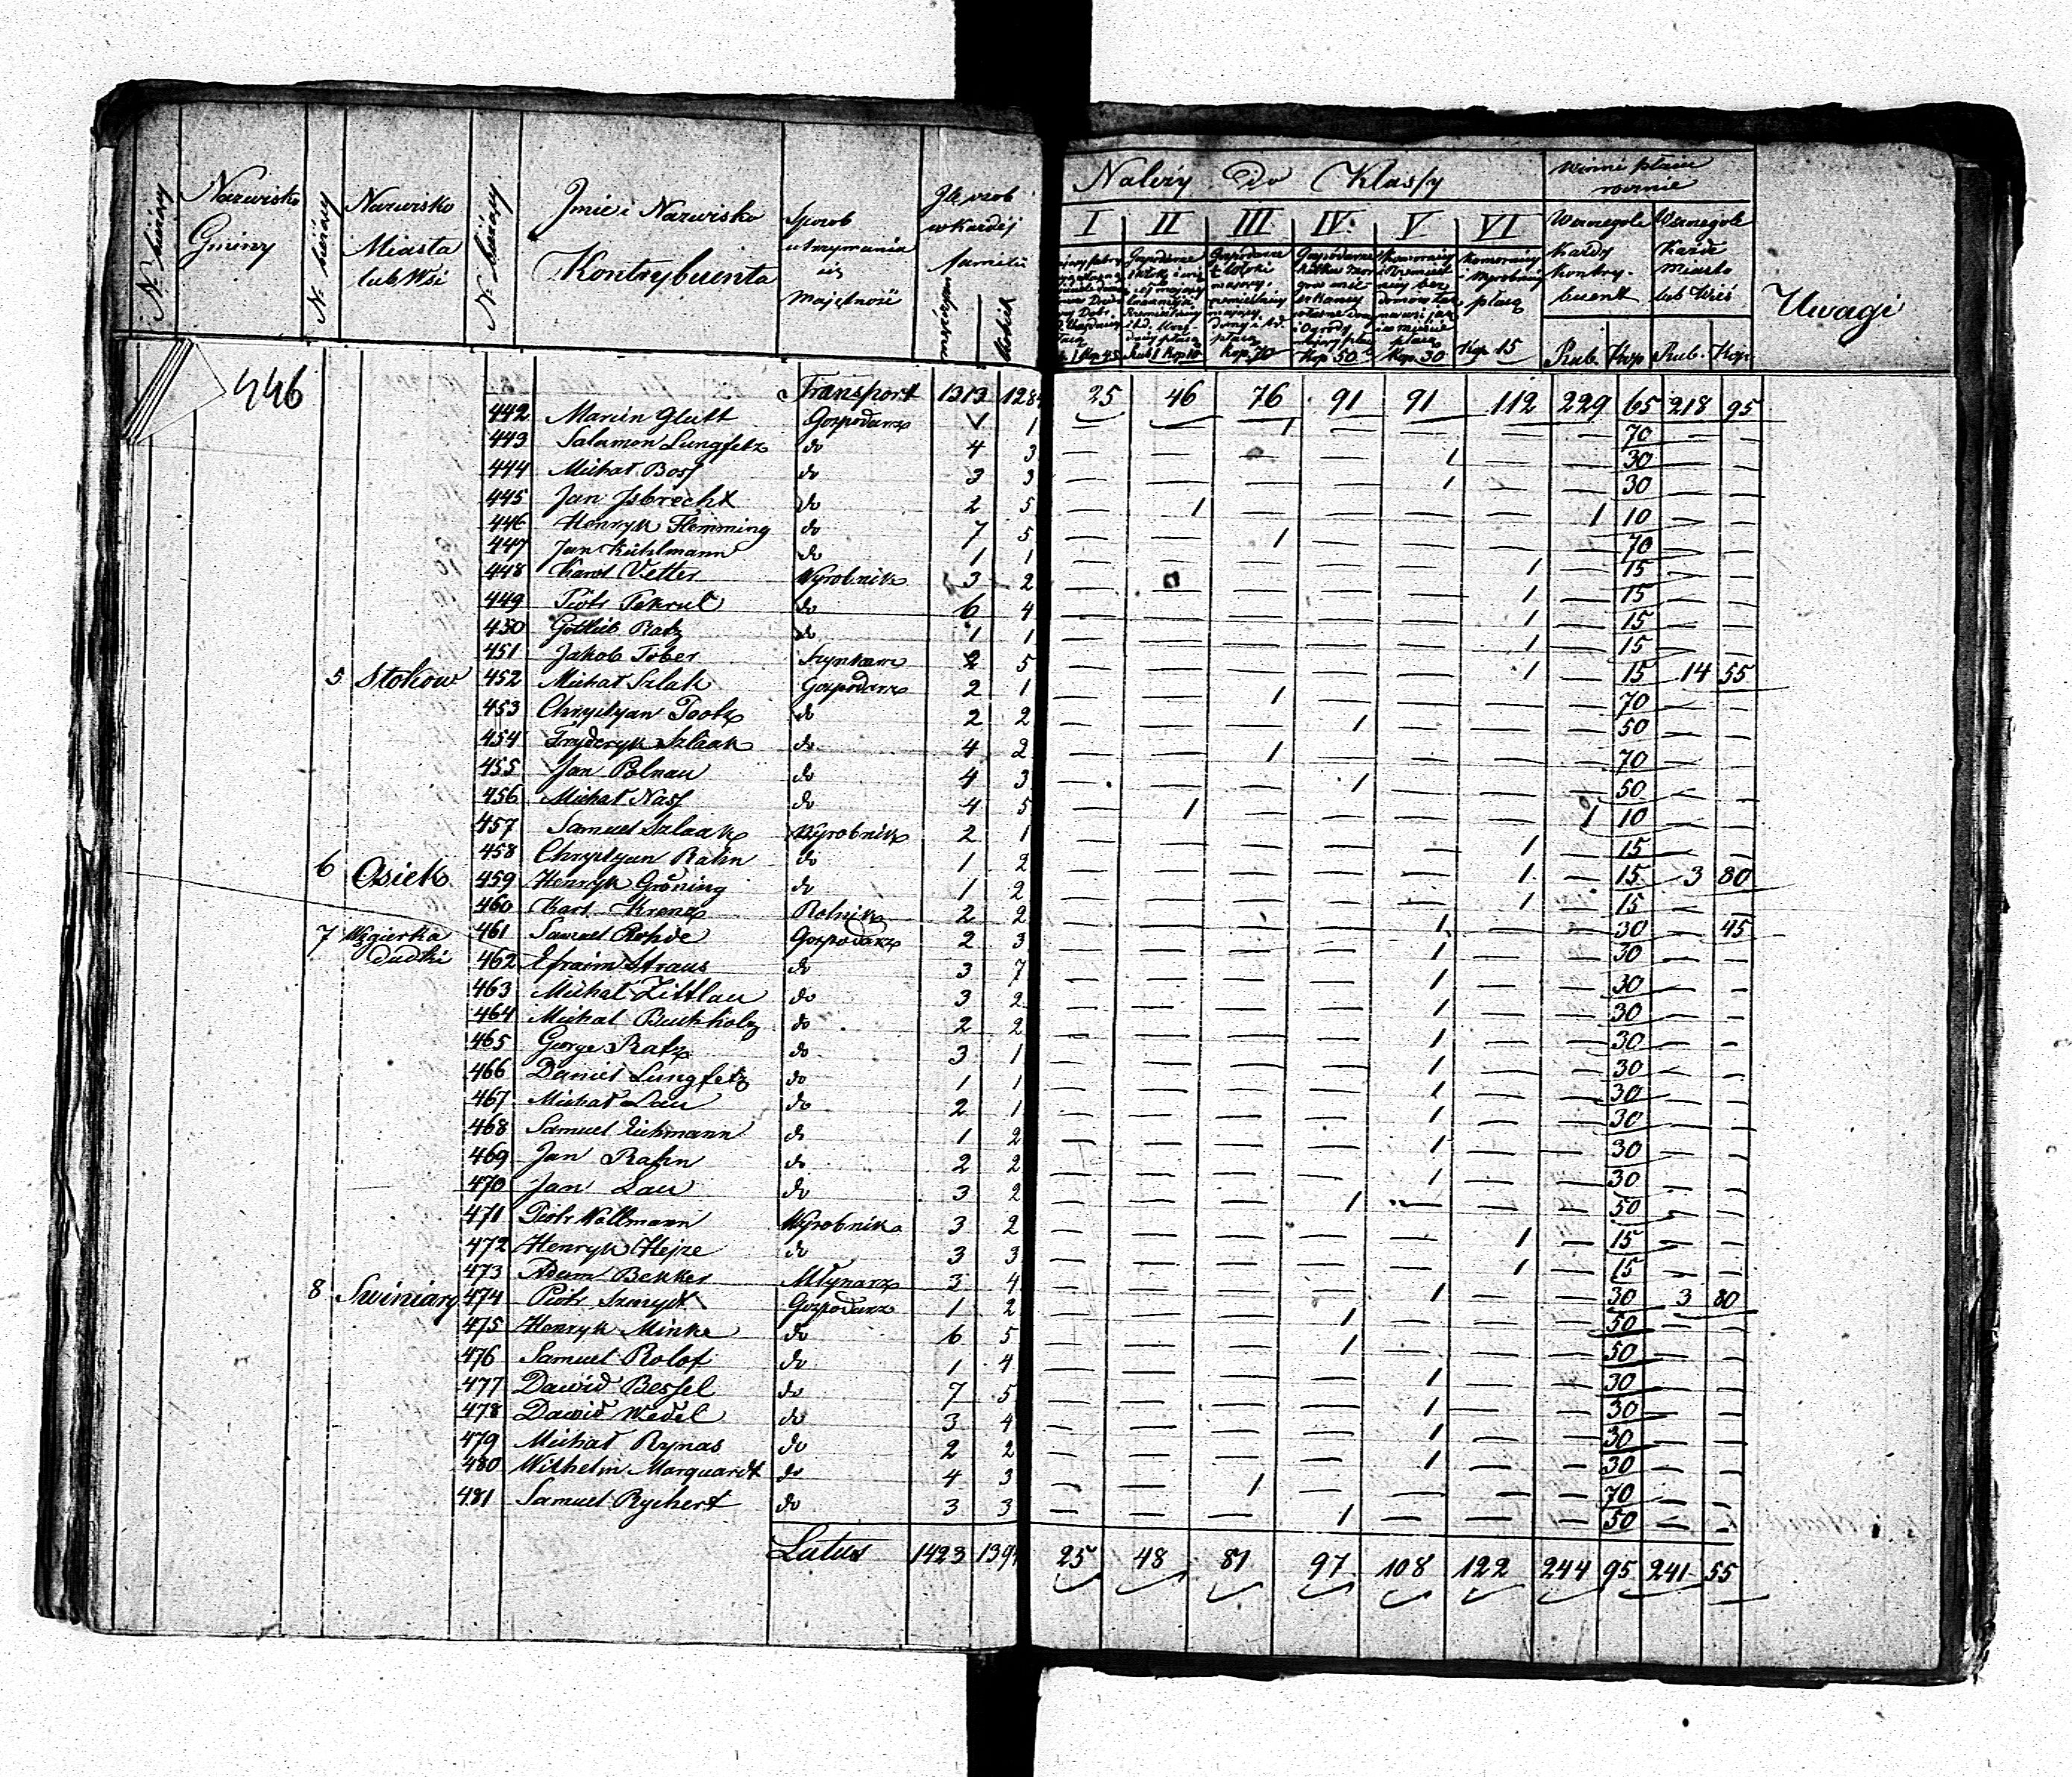 N. bieżący Nazwisko Gminy N. bieżący Nazwisko Miasta lub Wsi N. bieżący Jmie i Nazwisko Kontrybuenta Sposob utrzymania się Majętność Ile osob w każdéj familii męzczyzn kobiet
Należy Do Klassy Winni płacić rocznie
I II III IV V VI każdy kontrybuent Miasto lub Wieś Uwagi
Kop 70 Kop 50 Kop 30 Kop 15 Rub. Kop Rub. Kop
446 Transport 1313 128 25 46 76 91 91 112 229 65 218 95
442 Marcin Glutt Gospodarz 1 1 — — 1 — — — — 70 — —
443 Salamon Lungfetz do 4 3 — — — — 1 — — 30 — —
444 Michał Boss do 3 3 — — — — 1 — — 30 — —
445 Jan Jsbrecht do 2 5 — 1 — — — — 1 10 — —
446 Henryk Flemming do 7 5 — — 1 — — — — 70 — —
447 Jan Kühlmann do 1 1 — — — — — 1 — 15 — —
448 Karol Vetter Wyrobnik 3 2 — — — — — 1 — 15 — —
449 Piotr Tekrul do 6 4 — — — — — 1 — 15 — —
450 Gottlieb Ratz do 1 1 — — — — — 1 — 15 — —
451 Jakob Tober Szynkarz 2 5 — — — — — 1 — 15 14 55
5 Stokow 452 Michał Szlak Gospodarz 2 1 — — 1 — — — — 70 — —
453 Chrystyan Pootz do 2 2 — — — 1 — — — 50 — —
454 Fryderyk Szlaak do 4 2 — — 1 — — — — 70 — —
455 Jan Polnau do 4 3 — — — 1 — — — 50 — —
456 Michał Nass do 4 5 — 1 — — — — 1 10 — —
457 Samuel Szlaak Wyrobnik 2 1 — — — — — 1 — 15 — —
458 Chrystyan Rahn do 1 2 — — — — — 1 — 15 3 80
6 Osiek 459 Henryk Gröning do 1 2 — — — — — 1 — 15 — —
460 Karl Krenz Rolnik 2 2 — — — — 1 — — 30 — 45
7 Węgierka Dudki 461 Samuel Rohde Gospodarz 2 3 — — — — 1 — — 30 — —
462 Efraim Straus do 3 7 — — — — 1 — — 30 — —
463 Michał Zittlau do 3 2 — — — — 1 — — 30 — —
464 Michał Buchholz do 2 2 — — — — 1 — — 30 — —
465 George Ratz do 3 1 — — — — 1 — — 30 — —
466 Daniel Lungfetz do 1 1 — — — — 1 — — 30 — —
467 Michał Lau do 2 1 — — — — 1 — — 30 — —
468 Samuel Eichmann do 1 2 — — — — 1 — — 30 — —
469 Jan Rahn do 2 2 — — — — 1 — — 30 — —
470 Jan Lau do 3 2 — — — 1 — — — 50 — —
471 Piotr Wollmann Wyrobnik 3 2 — — — — — 1 — 15 — —
472 Henryk Hejze do 3 3 — — — — — 1 — 15 — —
473 Adam Bekker Młynarz 3 4 — — — — 1 — — 30 3 80
8 Swiniary 474 Piotr Szmydt Gospodarz 1 2 — — — 1 — — — 50 — —
475 Henryk Minke do 6 5 — — — 1 — — — 50 — —
476 Samuel Rolof do 1 4 — — — — 1 — — 30 — —
477 Dawid Bessel do 7 5 — — — — 1 — — 30 — —
478 Dawid Wedel do 3 4 — — — — 1 — — 30 — —
479 Michał Rynas do 2 2 — — — — 1 — — 30 — —
480 Wilhelm Marquardt do 4 3 — — 1 — — — — 70 — —
481 Samuel Rychert do 3 3 — — — 1 — — — 50 — —
Latus 1423 139 25 48 81 97 108 122 244 95 241 55